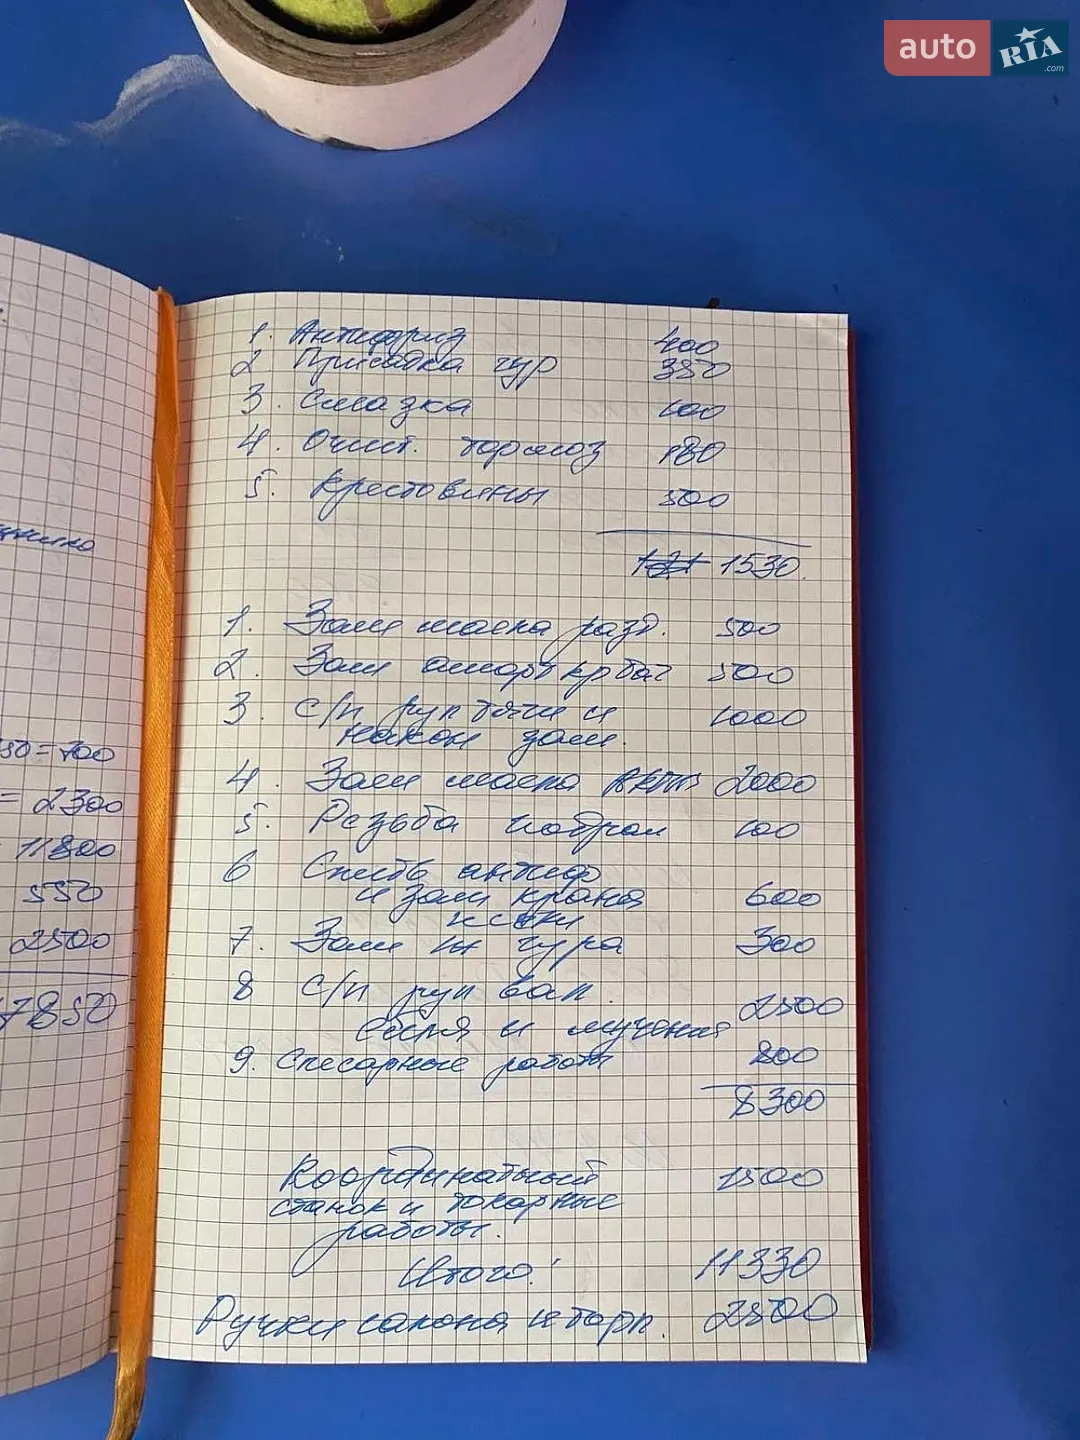 auto RIA.com
1. Антифриз 400
2 Присадка гур 350
3. Смазка 100
4. Очист. тормоз 180
5. Крестовины 500
1530.
1. Зам масла разд. 500
2. Зам аморт кр баг 500
3. С/п рул тяги и 1000
након зам.
4. Зам масла АКПП 2000
5. Резьба 100
6 Слить антиф
и зам крана 600
печки
7. Зам ж гура 300
8 С/п рул вал. 2500
и мучения
9. Слесарные работы 800
8300
Координатный 1500
станок и токарные
работы.
Итого: 11330
Ручки салона и торп. 2500
50=700
= 2300
11800
550
2500
7850